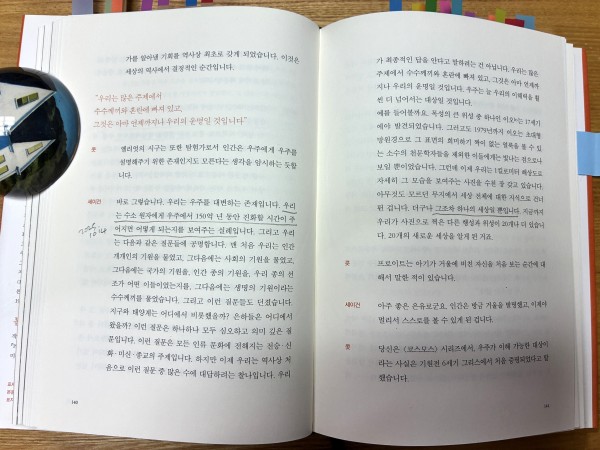 가를 알아낼 기회를 역사상 최초로 갖게 되었습니다. 이것은
세상의 역사에서 결정적인 순간입니다.
"우리는 많은 주제에서
수수께끼와 혼란에 빠져 있고,
그것은 아마 언제까지나 우리의 운명일 것입니다"
옷 앨러엇의 시구는 또한 말함가로서 인간은 우주에게 우주를
설명해주기 위한 존재인지도 모른다는 생각을 암시하는 듯합
니다.
세이건 바로 그렇습니다. 우리는 우주를 대변하는 존재입니다. 우리
는 수소 원자에게 우주에서 150억 년 동안 진화할 시간이 주
어지면 어떻게 되는지를 보여주는 실례입니다. 그리고 우리
는 다음과 같은 질문들에 공명합니다. 맨 처음 우리는 인간
개개인의 기원을 물었고, 그다음에는 사회의 기원을 물었고,
그다음에는 국가의 기원을, 인간 종의 기원을, 우리 종의 선
조가 어떤 이들이었는지를, 그다음에는 생명의 기원이라는
수수께끼를 물었습니다. 그리고 이런 질문들도 던졌습니다.
지구와 태양계는 어디에서 비롯했을까? 은하들은 어디에서
왔을까? 이런 질문은 하나하나 모두 심오하고 의미 깊은 질
문입니다. 이런 질문은 모든 인류 문화에 전해지는 전승·신
화·미신·종교의 주제입니다. 하지만 이제 우리는 역사상 처
음으로 이런 질문 중 많은 수에 대답하려는 찰나입니다. 우리
140
가 최종적인 답을 안다고 말하려는 건 아닙니다. 우리는 많은
주제에서 수수께끼와 혼란에 빠져 있고, 그것은 아마 언제까
지나 우리의 운명일 것입니다. 우주는 늘 우리의 이해력을 훨
씬 더 넘어서는 대상일 것입니다.
예를 들어볼까요. 목성의 큰 위성 중 하나인 이오는 17세기
에야 발견되었습니다. 그러고도 1979년까지 이오는 초대형
망원경으로 그 표면의 희미하기 짝이 없는 얼룩을 볼 수 있
는 소수의 천문학자들을 제외한 이들에게는 빛나는 점으로나
보일 뿐이었습니다. 그런데 이제 우리는 1킬로미터 해상도로
자세히 그 모습을 보여주는 사진을 수천 장 갖고 있습니다.
아무것도 모르던 무지에서 세상 전체에 대한 지식으로 건너
뛴 겁니다. 더구나 그조차 하나의 세상일 뿐입니다. 지금까지
우리가 사진으로 찍은 다른 행성과 위성이 20개나 더 있습니
다. 20개의 새로운 세상을 알게 된 거죠.
옷 프로이트는 아기가 거울에 비친 자신을 처음 보는 순간에 대
해서 말한 적이 있습니다.
세이건 아주 좋은 은유로군요. 인간은 방금 거울을 발명했고, 이제야
멀리서 스스로를 볼 수 있게 된 겁니다.
옷 당신은 〈코스모스〉 시리즈에서, 우주가 이해 가능한 대상이
라는 사실은 기원전 6세기 그리스에서 처음 증명되었다고 말
했습니다.
141